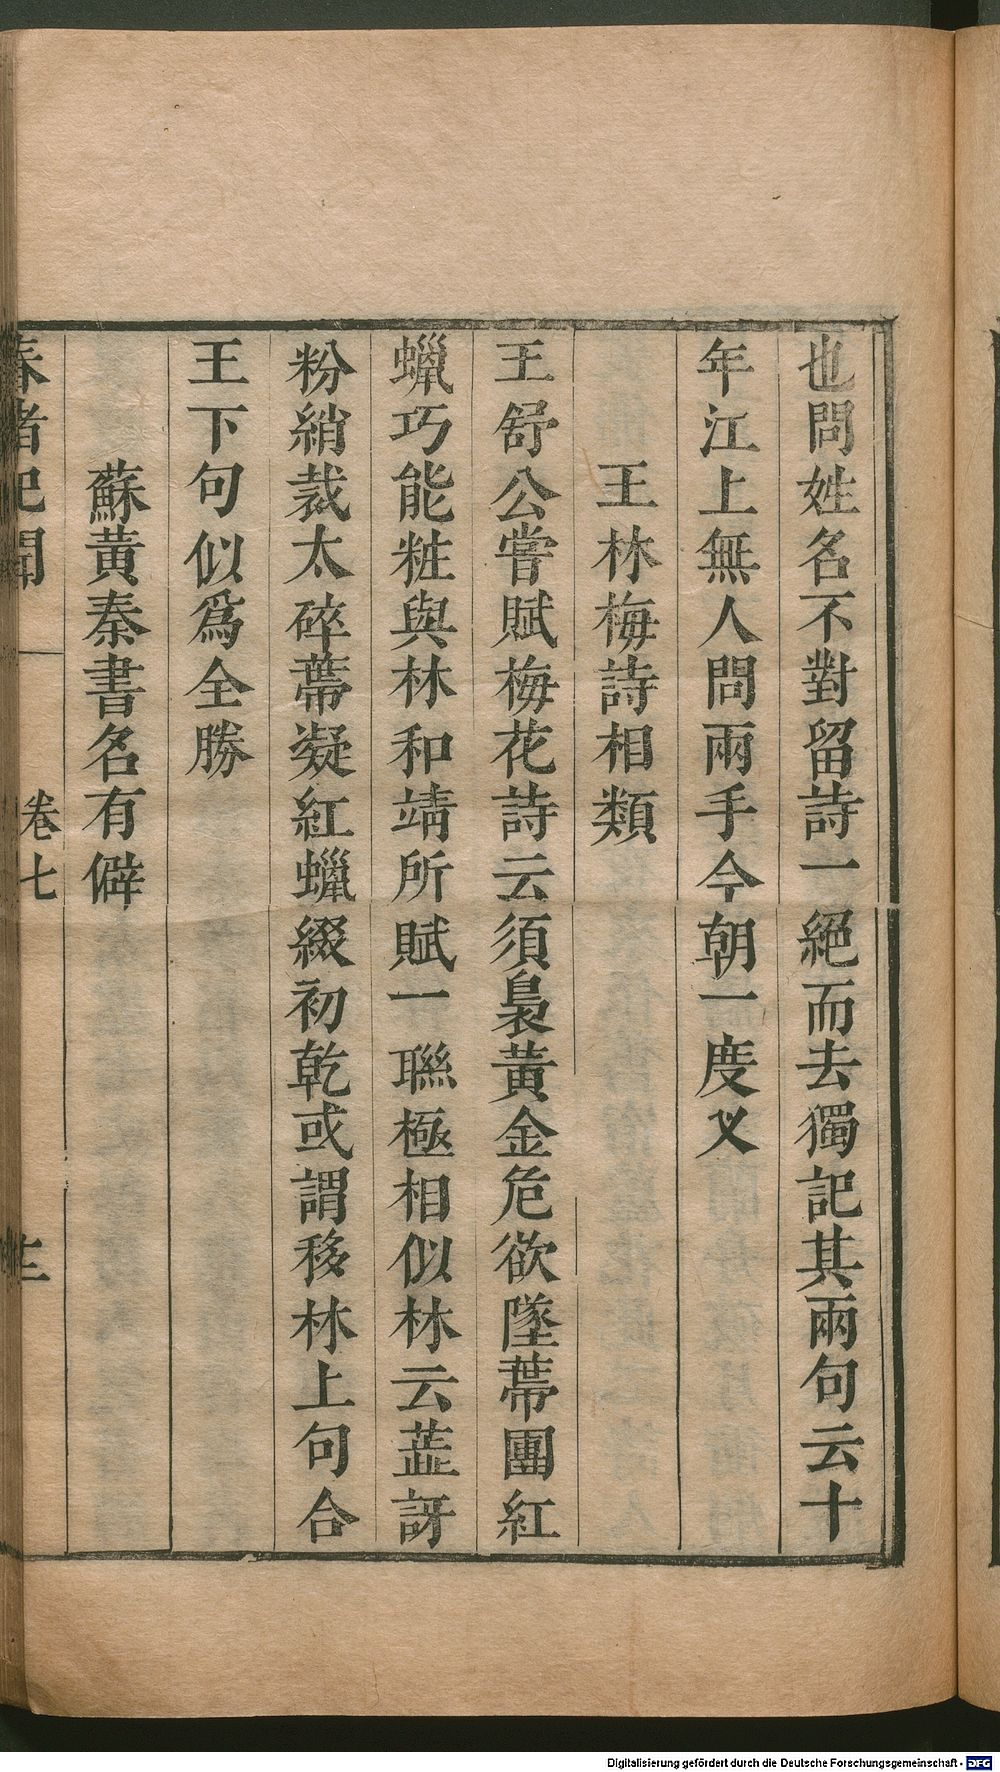 也問姓名不對留詩一絕而去獨記其兩句云十
年江上無人問兩手今朝一度乂
王林梅詩相類
王舒公嘗賦梅花詩云須裊黃金危欲墜蔕團紅
蠟巧能粧與林和靖所賦一聯極相似林云蘂訝
粉綃裁太碎蔕凝紅蠟綴初乾或謂移林上句合
王下句似爲全勝
蘇黃秦書名有僻
春渚紀聞 卷七
Digitalisierung gefördert durch die Deutsche Forschungsgemeinschaft - DFG